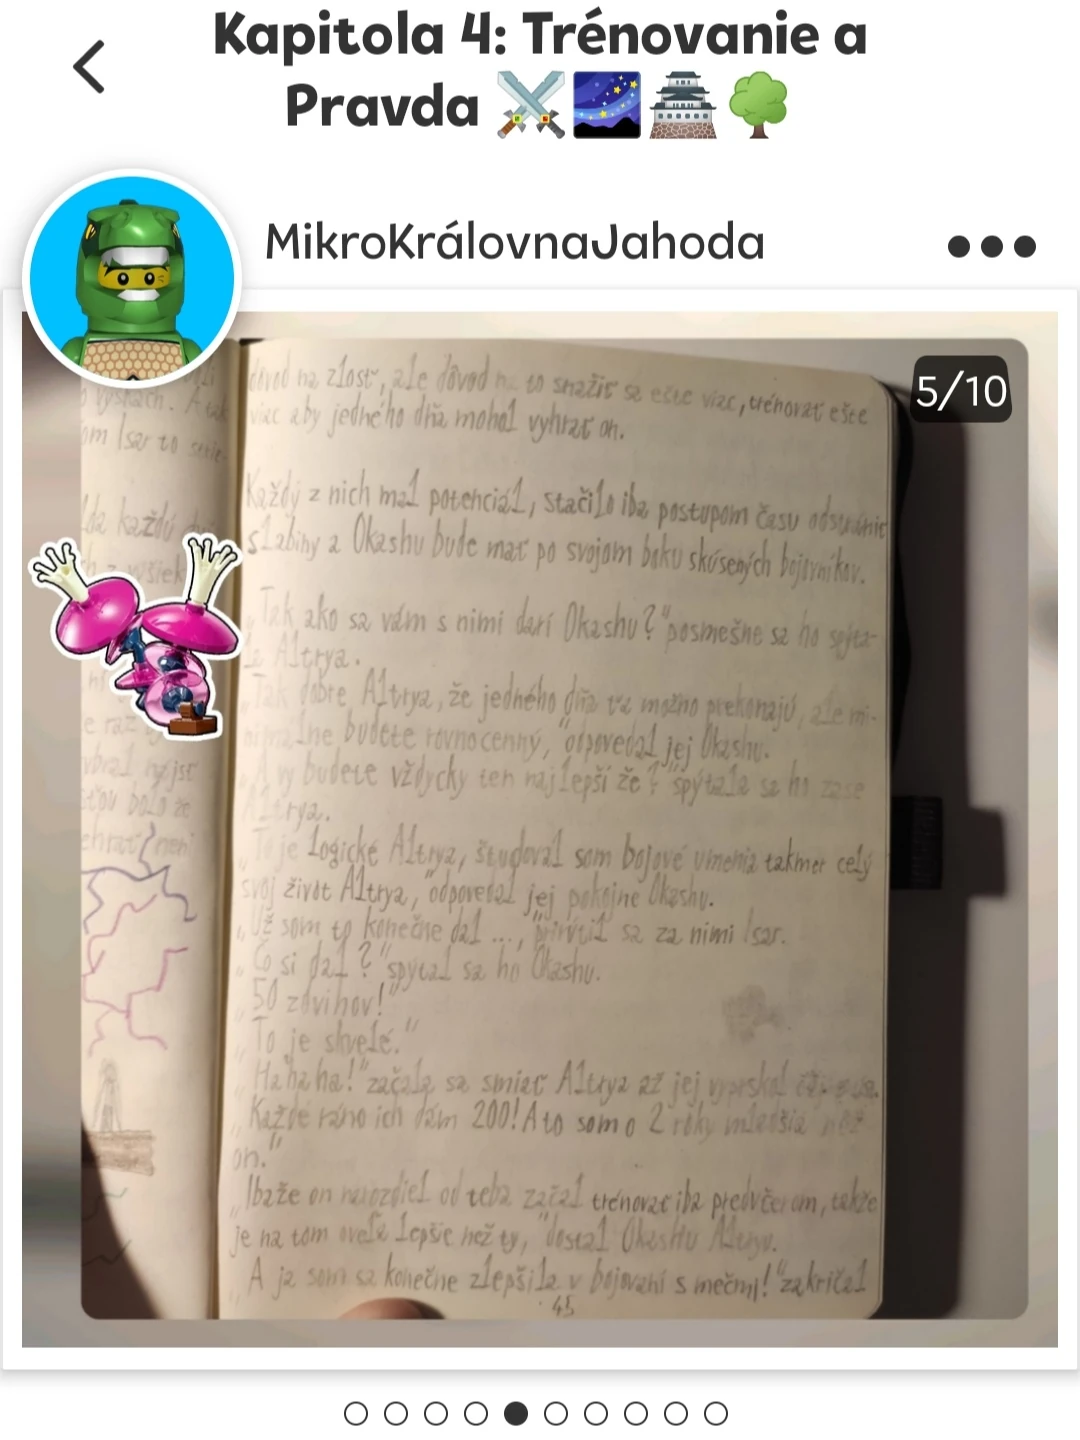 Kapitola 4: Trénovanie a
Pravda
MikroKrálovnaJahoda
5/10
dôvod na zlosť, ale dôvod na to snažiť sa ešte viac, trénovať ešte
viac aby jedného dňa mohol vyhrať on.
Každý z nich mal potenciál, stačilo iba postupom času odstrániť
slabiny a Okashu bude mať po svojom boku skúsených bojovníkov.
„Tak ako sa vám s nimi darí Okashu?" posmešne sa ho spýta-
la Altrya.
„Tak dobre Altrya, že jedného dňa ťa možno prekonajú, ale mi-
nimálne budete rovnocenný," odpovedal jej Okashu.
„A vy budete vždycky ten najlepší že?" spýtala sa ho zase
Altrya.
„To je logické Altrya, študoval som bojové umenia takmer celý
svoj život Altrya," odpovedal jej pokojne Okashu.
„Už som to konečne dal ...," prirútil sa za nimi Isar.
„Čo si dal?" spýtal sa ho Okashu.
„50 zdvihov!"
„To je skvelé."
„Ha ha ha!" začala sa smiať Altrya až jej vyprskol
„Každé ráno ich dám 200! A to som o 2 roky mladšia než
on."
„Ibaže on narozdiel od teba začal trénovať iba predvčerom, takže
je na tom oveľa lepšie než ty," dostal Okashu Altryu.
„A ja som sa konečne zlepšila v bojovaní s mečmi!" zakričal
45